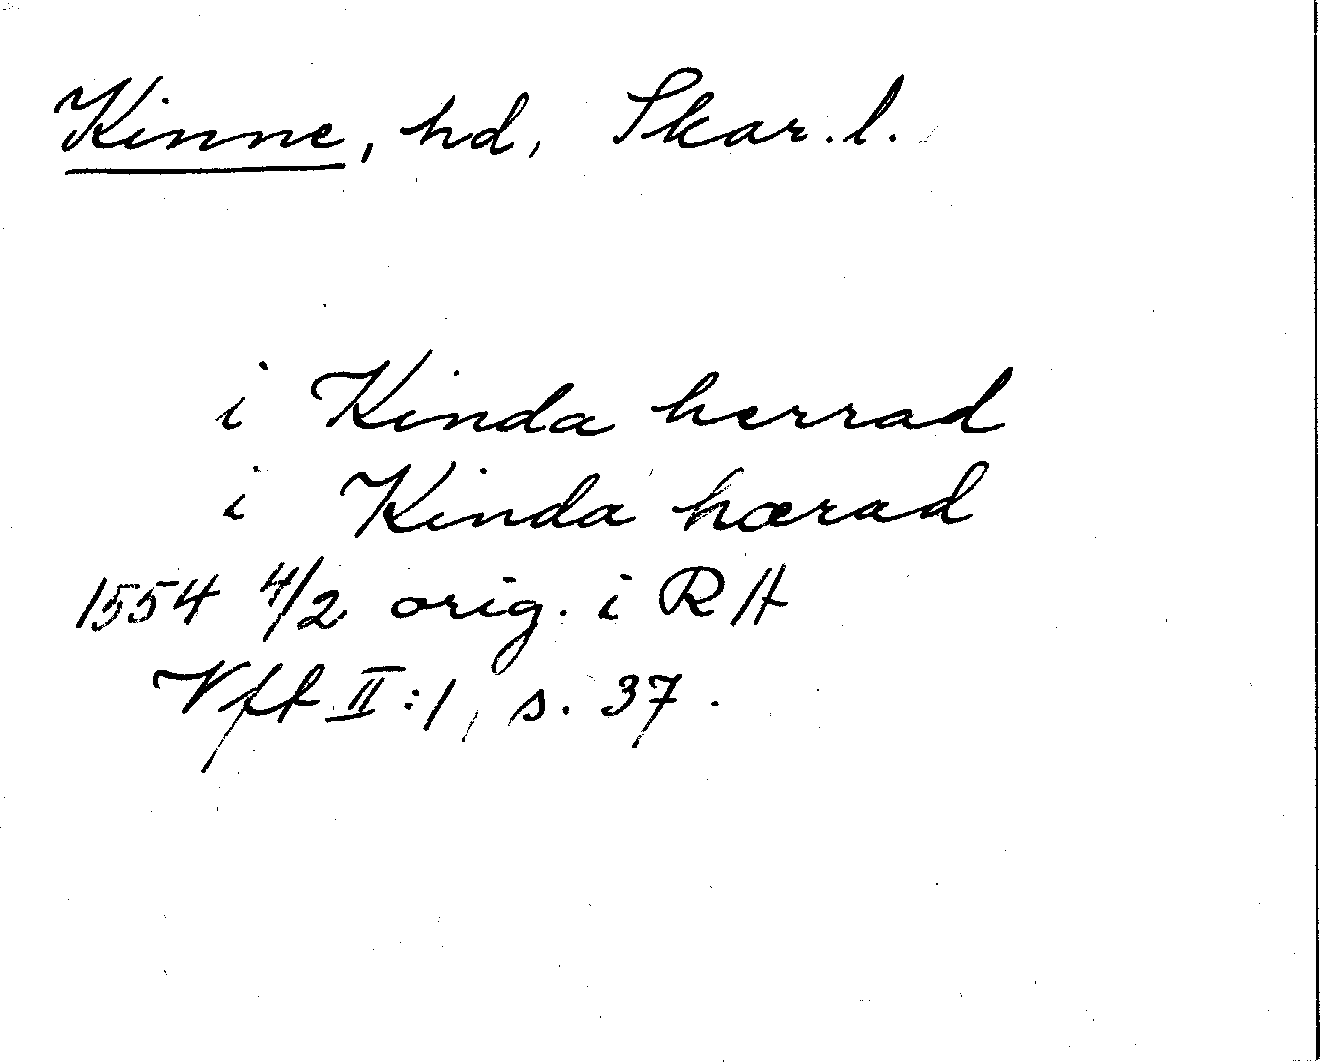 Kinne, hd, Skar. l.
i Kinda herrad
i Kinda hærad
1554 4/2 orig. i RH
Vft II:1, s. 37.